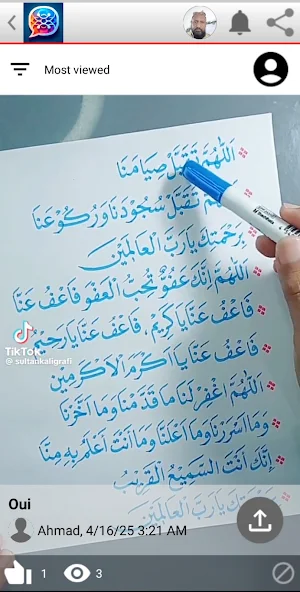 Most viewed
اَللّٰهُمَّ تَقَبَّلْ صِيَامَنَا
تَقَبَّلْ سُجُوْدَنَا وَرُكُوْعَنَا
بِرَحْمَتِكَ يَا رَبَّ الْعَالَمِيْنَ
اَللّٰهُمَّ اِنَّكَ عَفُوٌّ تُحِبُّ الْعَفْوَ فَاعْفُ عَنَّا
فَاعْفُ عَنَّا يَا كَرِيْمُ، فَاعْفُ عَنَّا يَا رَحِيْمُ
فَاعْفُ عَنَّا يَا اَكْرَمَ الْاَكْرَمِيْنَ
اَللّٰهُمَّ اغْفِرْ لَنَا مَا قَدَّمْنَا وَمَا اَخَّرْنَا
وَمَا اَسْرَرْنَا وَمَا اَعْلَنَّا وَمَا اَنْتَ اَعْلَمُ بِهِ مِنَّا
اِنَّكَ اَنْتَ السَّمِيْعُ الْقَرِيْبُ
يَا رَبَّ الْعَالَمِيْنَ
TikTok
@sultankaligrafi
Oui
Ahmad, 4/16/25 3:21 AM
1
3